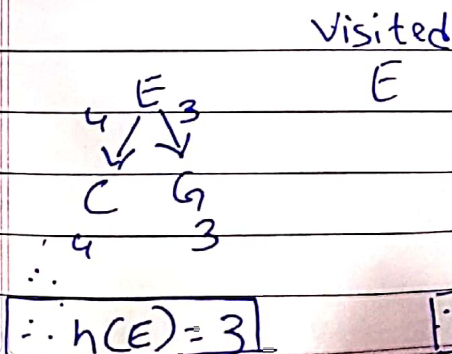 Visited
E
E
4 3
C G
4 3
∴
∴ h(E) = 3